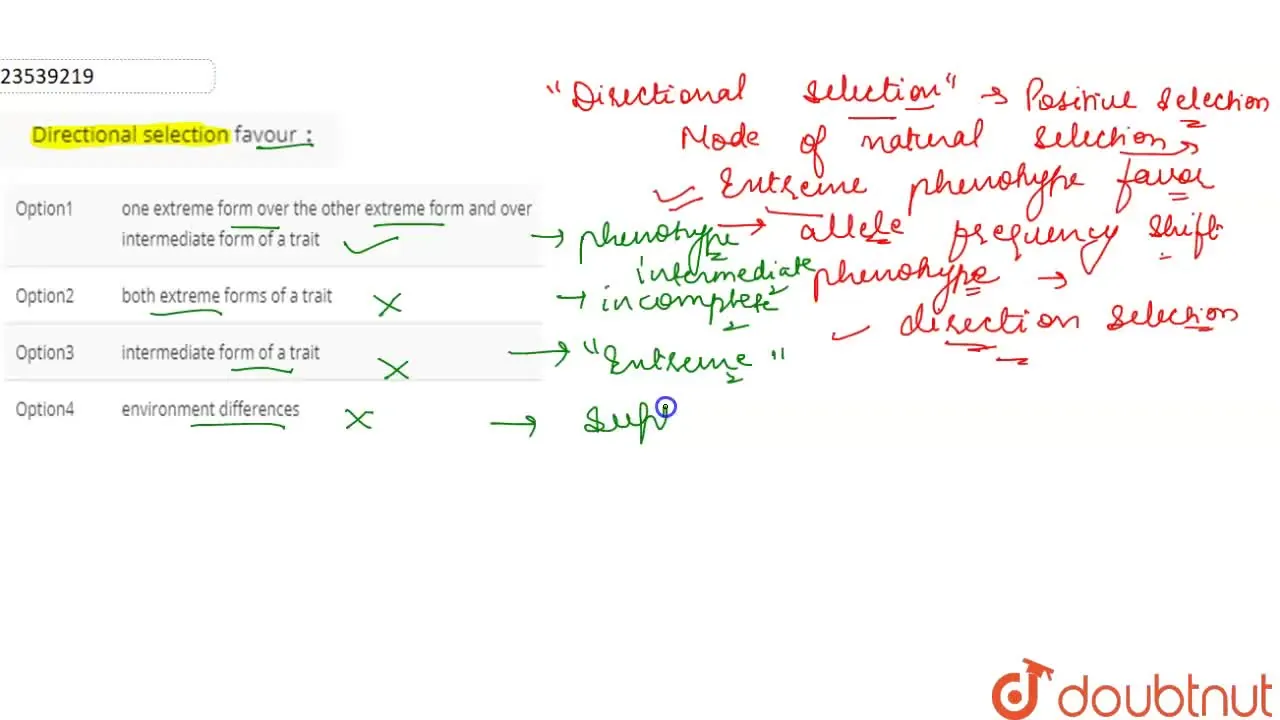 23539219
Directional selection favour :
Option1 one extreme form over the other extreme form and over
intermediate form of a trait
Option2 both extreme forms of a trait
Option3 intermediate form of a trait
Option4 environment differences
"Directional selection" → Positive selection
Mode of natural selection →
Extreme phenotype favor
→ allele frequency shift
phenotype →
direction selection
→ phenotype
intermediate
→ incomplete
→ "Extreme"
→ sup
doubtnut